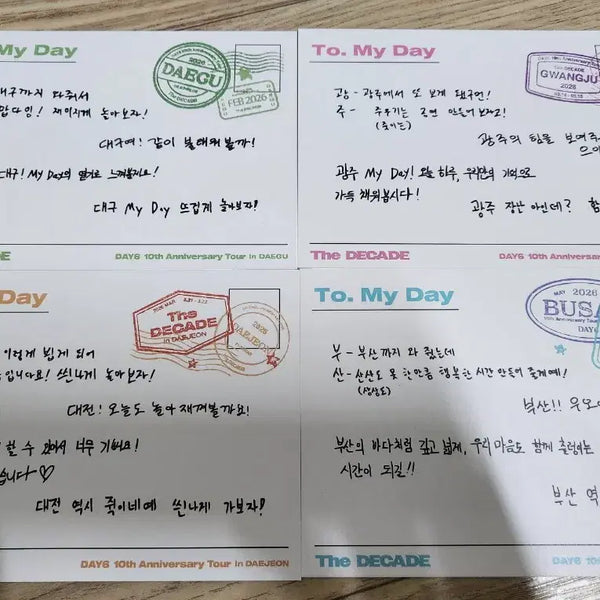 My Day
2026
DAEGU
FEB 2026
대구까지 와줘서
재미지게 놀아보자!
대구여! 같이 불태워볼까!
대구! My Day의 열기로 느껴볼게요!
대구 My Day 뜨겁게 놀아보자!
DE
DAY6 10th Anniversary Tour in DAEGU
To. My Day
The DECADE
GWANGJU
2026
광 - 광주에서 또 보게 됐구먼!
주 - 주우기는 공연 만들어보자고!
(죽이는)
광주의 힘을 보여주
광주 My Day! 오늘 하루, 우리만의 기억으로
가득 채워봅시다!
광주 장난 아인데? 함
The DECADE
DAY6 10th Anniversary Tour
Day
The
DECADE
in DAEJEON
2026
DAEJEON
이렇게 뵙게 되어
씐나게 놀아보자!
대전! 오늘도 놀아 재껴볼까요!
할 수 있어서 너무 기뻐요!
습니다♡
대전 역시 죽이네예 씐나게 가보자!
DAY6 10th Anniversary Tour in DAEJEON
To. My Day
MAY 2026
BUSA
10th Anniversary Tour
DAY6
부 - 부산까지 와 줬는데
산 - 산산도 못 한만큼 행복한 시간 만들어 줄게예!
(상상도)
부산!!
부산의 바다처럼 깊고 넓게, 우리 마음도 함께 출렁이는
시간이 되길!!
부산 역
The DECADE
DAY6 10th